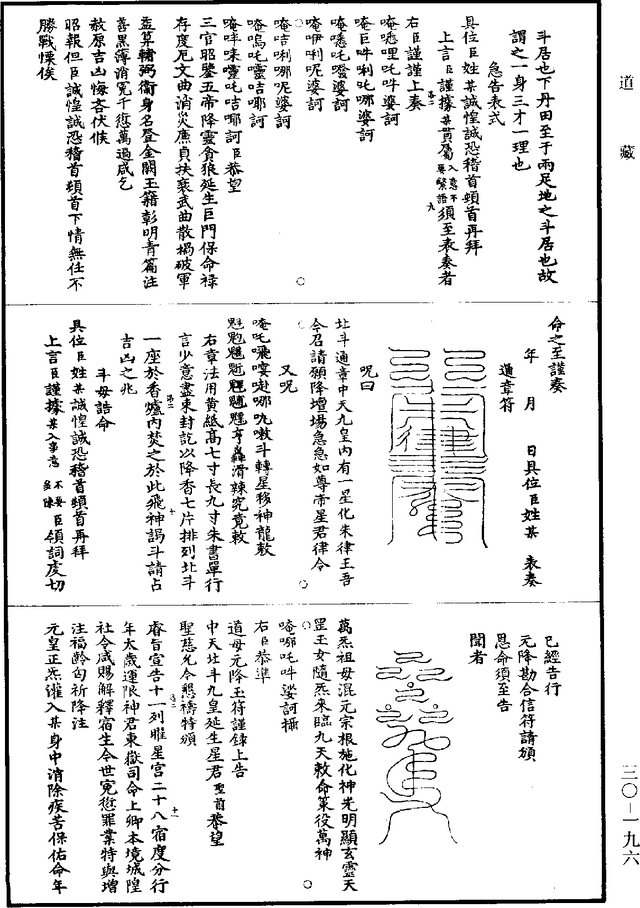 道藏
斗居也下丹田至于兩足地之斗居也故
謂之一身三才一理也
急告表式
具位臣姓某誠惶誠恐稽首頓首再拜
上言臣謹據某貫屬入意不要繁語須至表奏者
右臣謹謹上奏
唵㗭哩吒吽婆訶
唵巨吽唎吒哪婆訶
唵㗭吒㘔婆訶
唵咿唎呢婆訶
唵咭唎哪呢婆訶
唵嗚吒𡃤咭耶訶
唵吽唻𡃤吒咭耶訶臣恭望
三官昭鑒五帝降靈貪狼延生巨門保命祿
存度厄文曲消災廉貞扶衰武曲散禍破軍
益算輔弼衞身名登金闕玉籍彰明青篇注
善黑簿消冤千愆萬過咸乞
赦原吉凶悔吝伏候
昭報但臣誠惶誠恐稽首頓首下情無任不
勝戰慄俟
命之至謹奏
年 月 日具位臣姓某 表奏
通章符
呪曰
北斗通章中天九皇內有一星化朱律王吾
今召請願降壇場急急如尊帝星君律令
又呪
斗轉星移神龍敕
右章法用黄紙高七寸長九寸朱書單行
言少意盡束封訖以降香七片排列北斗
一座於香爐內焚之於此飛神謁斗請占
吉凶之兆
斗母誥命
具位臣姓某誠惶誠恐稽首頓首再拜
上言臣謹據某入事意不要多陳臣領詞虔切
已經告行
元降勘合信符請頒
恩命須至告
聞者
萬炁祖母混元宗根施化神光明顯玄靈天
罡玉女隨炁來臨九天敕命策役萬神
唵哪吒吽娑訶攝
右臣恭準
道母元降玉符謹錄上告
中天北斗九皇延生星君聖首恭望
聖慈允令懇禱特頒
睿旨宣告十一列曜星宮二十八宿度分行
年太歲運限神君東嶽司命上卿本境城隍
社令咸賜解釋宿生今世冤愆罪業特與增
注福齡匃祈降注
元皇正炁灌入某身中消除疾苦保佑命年
三〇—一九六